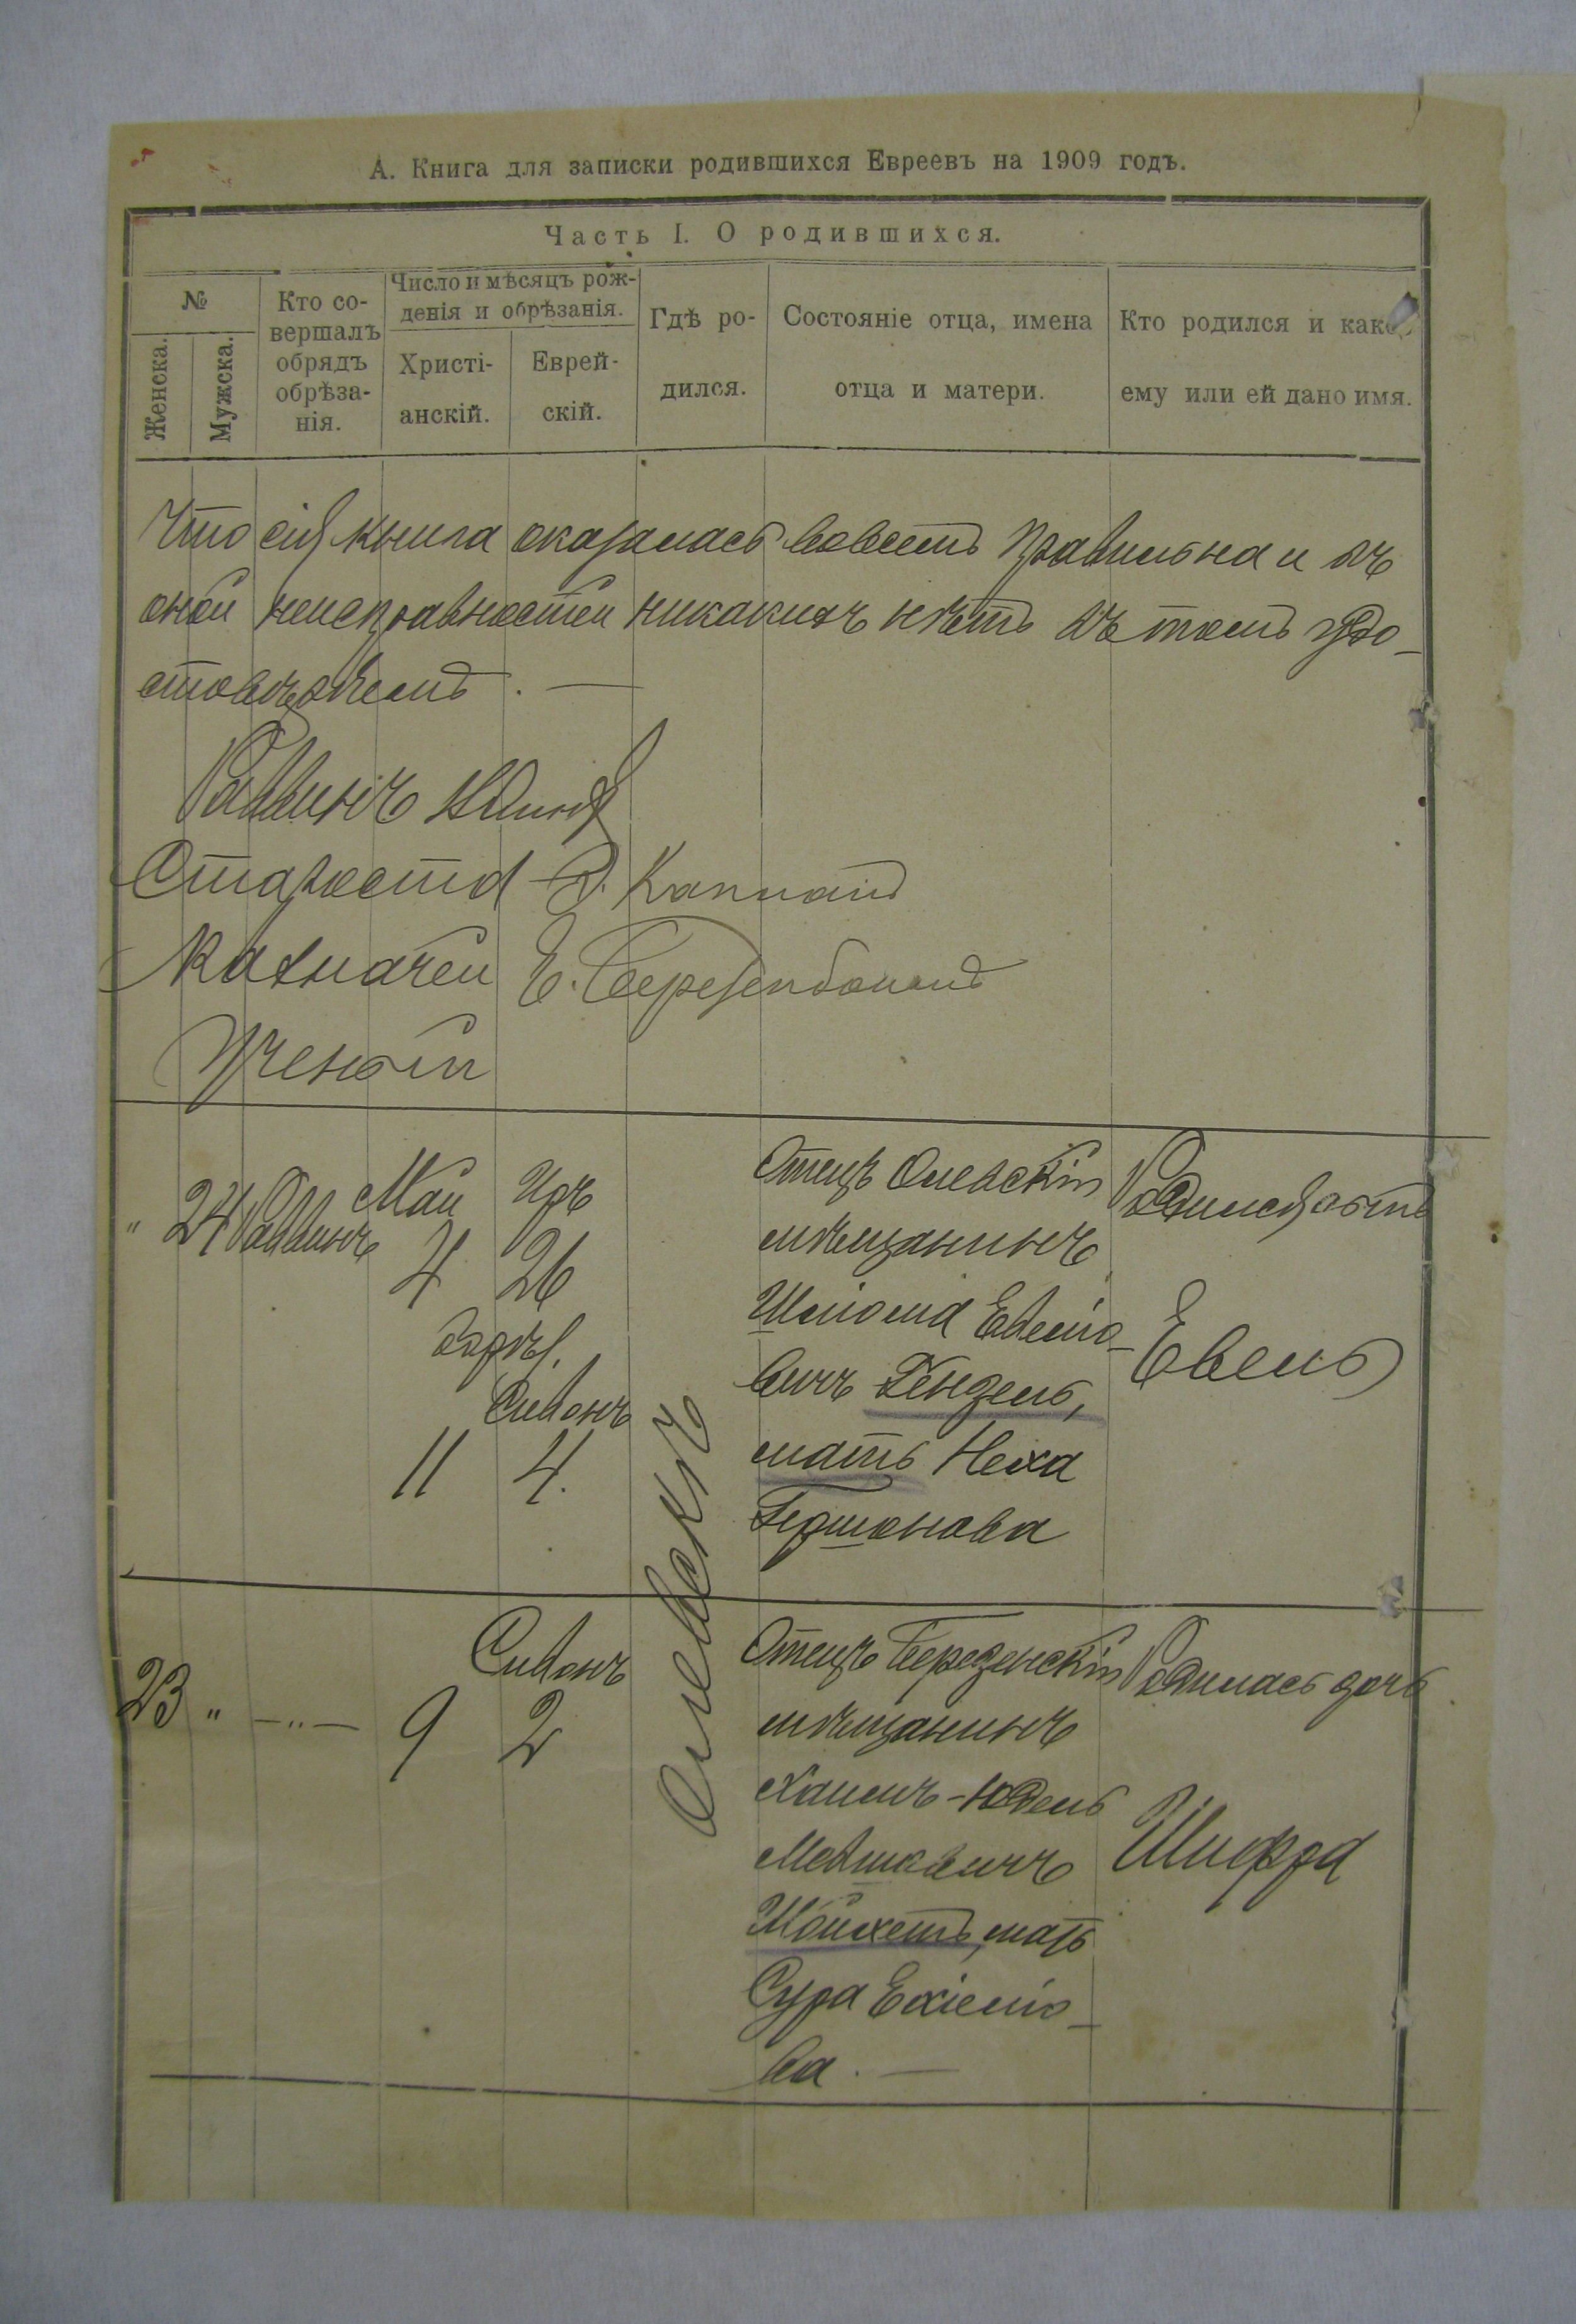 А. Книга для записки родившихся Евреевъ на 1909 годъ.
Часть I. О родившихся.
№
Женска.
Мужска.
Кто со-
вершалъ
обрядъ
обрѣза-
нія.
Число и мѣсяцъ рож-
денія и обрѣзанія.
Христі-
анскій.
Еврей-
скій.
Гдѣ ро-
дился.
Состояніе отца, имена
отца и матери.
Кто родился и какое
ему или ей дано имя.
Что сія книга оказалась вовсемъ правильна и въ
оной неисправностей никакихъ нѣтъ въ томъ удо-
стовѣряемъ. —
Раввинъ
Староста Капланъ
Казначей Е.
Ученый
" 24 Раввинъ Май Иръ
4 26
обрѣз.
Сивонъ
11 4.
Олевскъ
Отецъ Олевскій
мѣщанинъ
Шліома Евеліо-
вичъ Гендель,
мать Неха
Гершонова
Родился сынъ
Евель
23 " —„— Сивонъ
9 2
Отецъ Березенскій
мѣщанинъ
Хаимъ-Юдель
Мошковичъ
Шойхетъ, мать
Сура Ехіеліо-
ва. —
Родилась дочь
Шифра